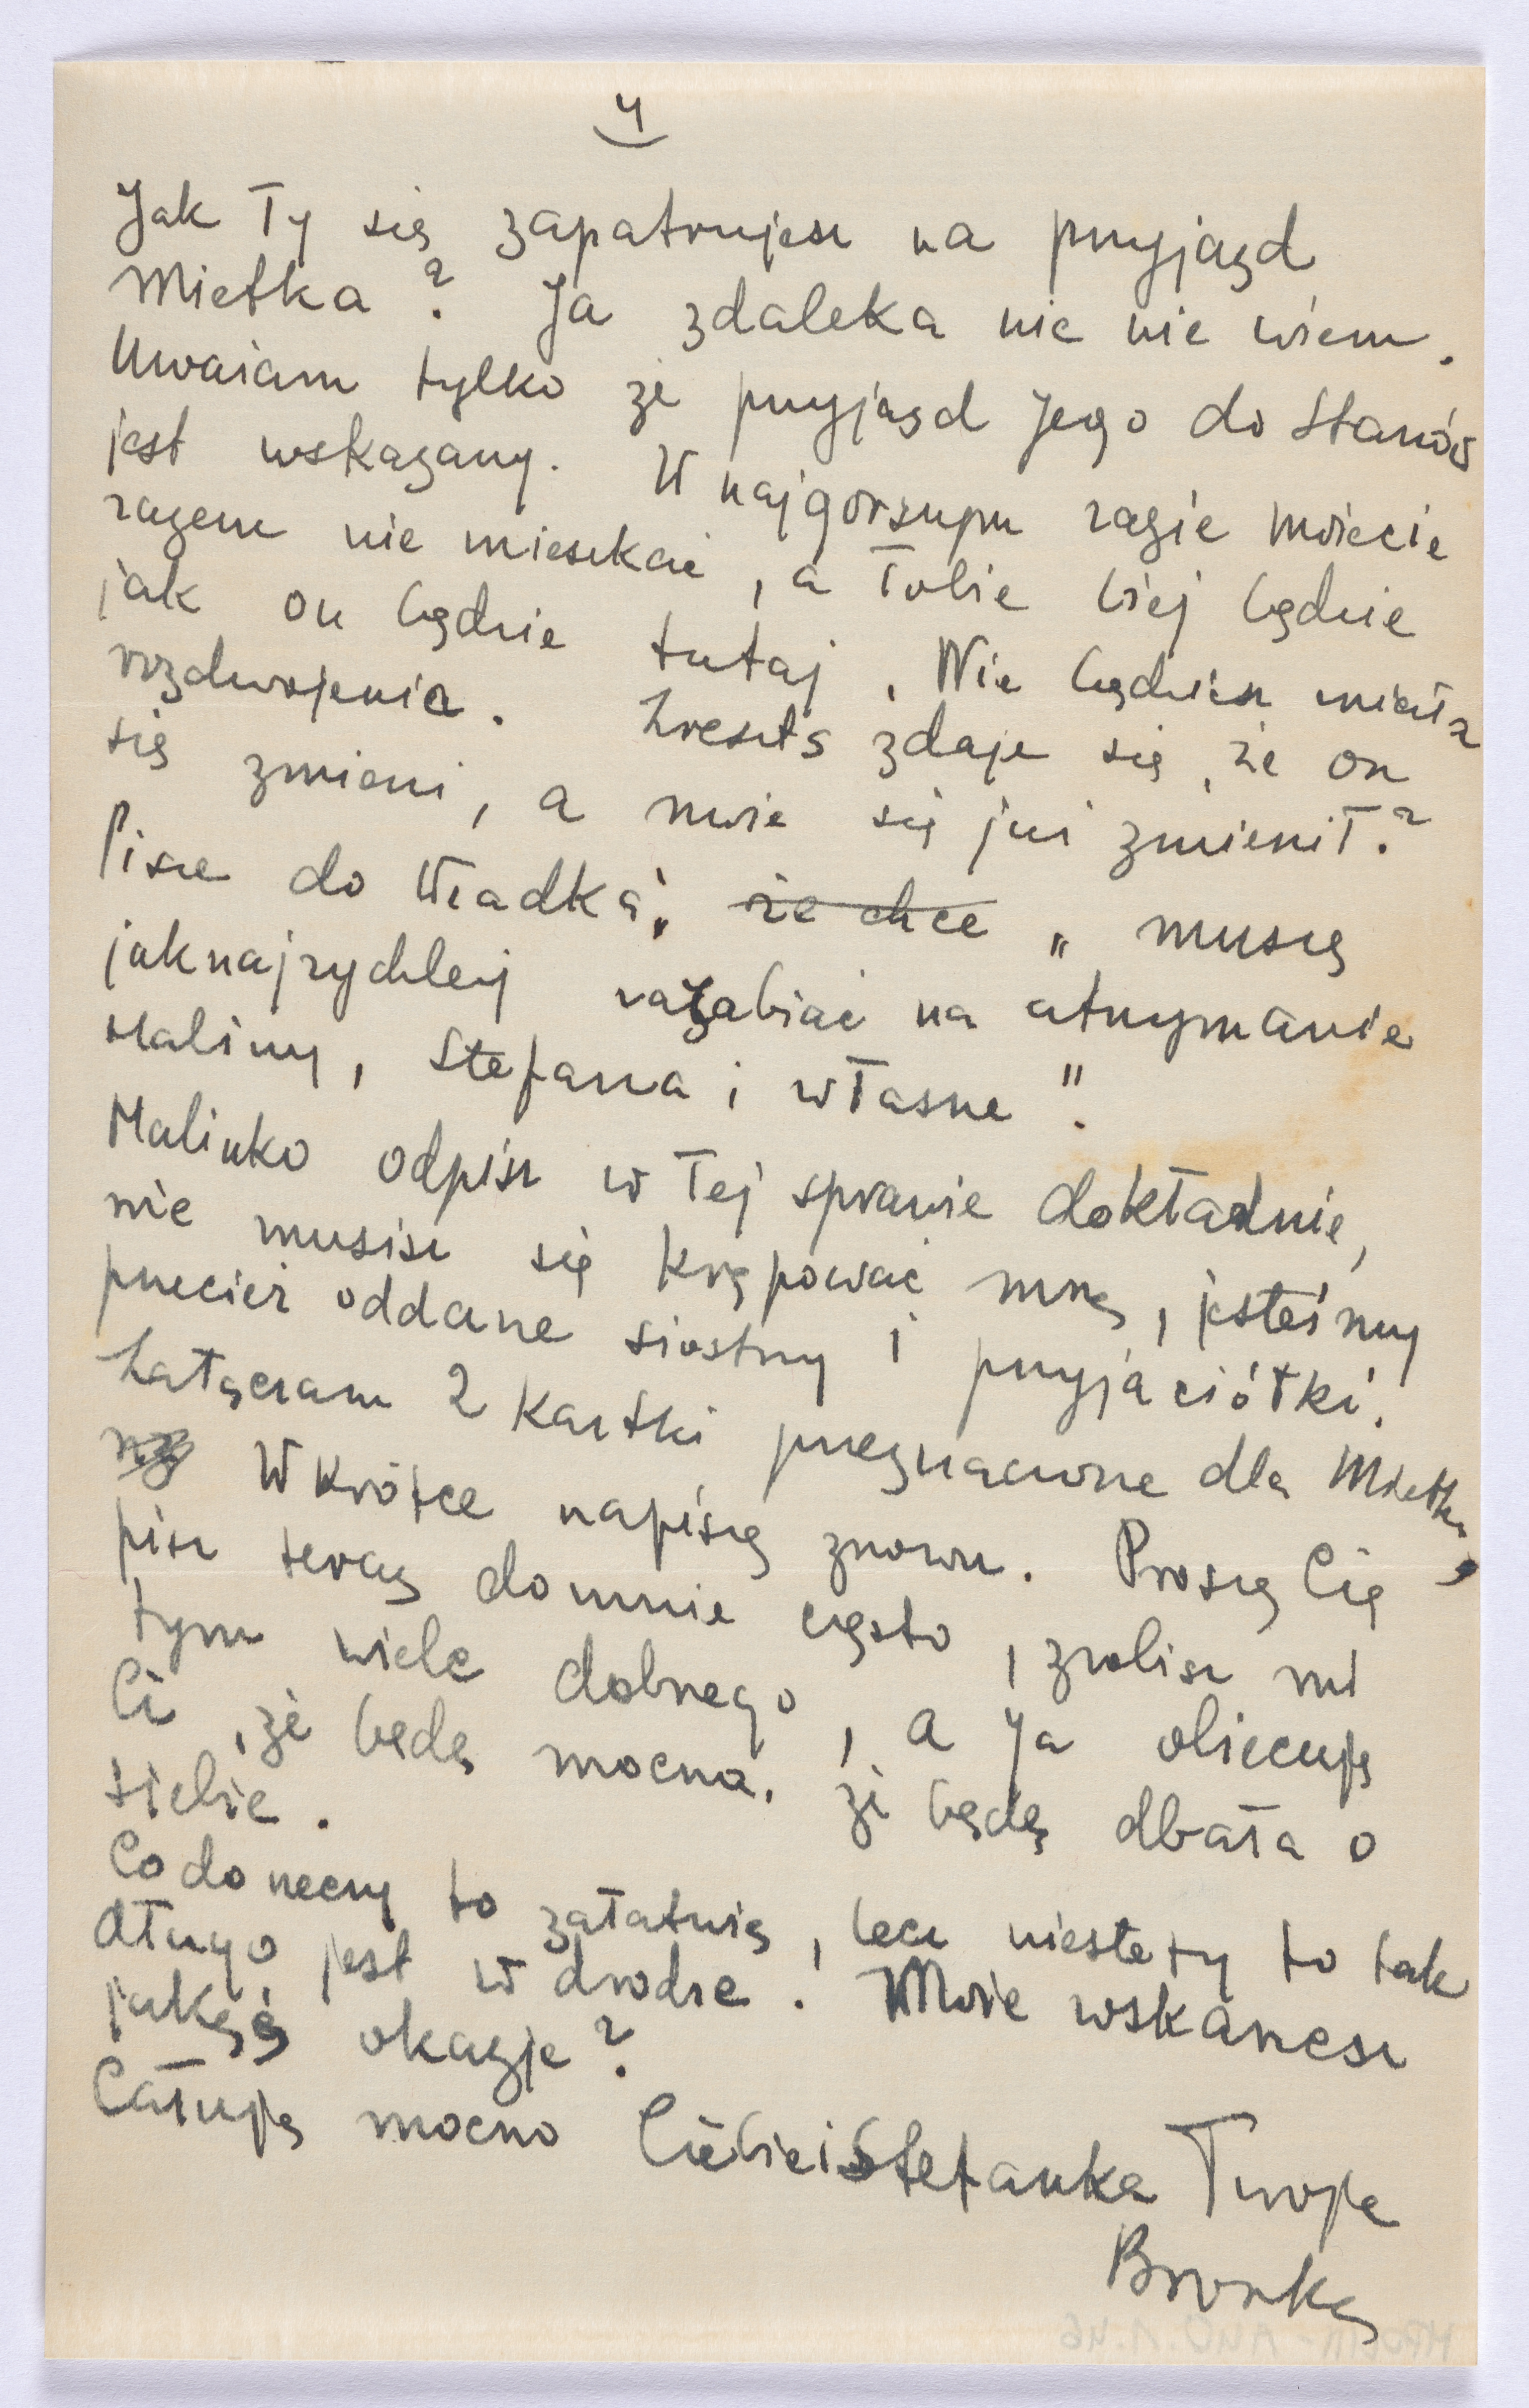 4
Jak Ty się zapatrujesz na przyjazd
Mietka? Ja zdaleka nic nie wiem.
Uważam tylko że przyjazd Jego do Stanów
jest wskazany. W najgorszym razie możecie
razem nie mieszkać, a Tobie lżej będzie
jak on będzie tutaj. Nie będziesz miała
rozdwojenia. Zresztą zdaje się, że on
się zmieni, a może się już zmienił?
Pisze do Władka, że chce „musię
jaknajrychlej zarabiać na utrzymanie
Haliny, Stefana i własne".
Halinko odpisz w Tej sprawie dokładnie,
nie musisz się krępować mną, jesteśmy
przecież oddane siostry i przyjaciółki.
Załączam 2 kartki przeznaczone dla Mietka,
Wkrótce napiszę znowu. Proszę Cię
pisz teraz domnie często, zrobisz mi
tym wiele dobrego, a ja obiecuję
Ci, że będę mocna, że będę dbała o
siebie.
Co do rzeczy to załatwię, lecz niestety to tak
długo jest w drodze. Może wskarzesz
jakąś okazję?
Całuję mocno Ciebie i Stefanka Twoja
Bronka